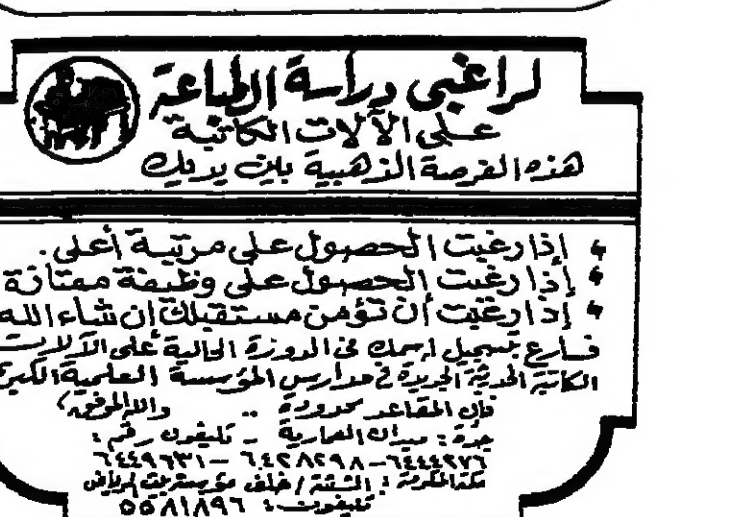 لراغبي دراسة الطباعة
على الآلات الكاتبة
هذه الفرصة الذهبية بين يديك
إذا رغبت الحصول على مرتبة أعلى.
إذا رغبت الحصول على وظيفة ممتازة
إذا رغبت أن تؤمن مستقبلك إن شاء الله
فسارع بتسجيل اسمك في الدورة الحالية على الآلات
الكاتبة الحديثة الجديدة في مدارس المؤسسة العلمية الكبرى
فإن المقاعد محدودة .. والله الموفق،
جدة : ميدان العمارية - تليفون رقم :
٦٤٤٤٢٧٦-٦٤٢٨٢٩٨-٦٤٤٩٦٣١
مكة المكرمة : الششة / خلف
تليفون : ٥٥٨١٨٩٦